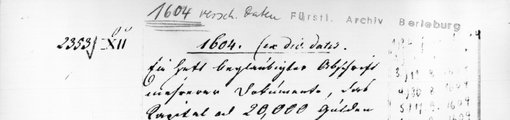 1604 versch. Daten Fürstl. Archiv Berleburg
2353/XII
1604. (ex div. dates.
Ein Heft beglaubigter Abschrift
mehrerer Dokumente, das
Kapital ad 20,000 Gulden